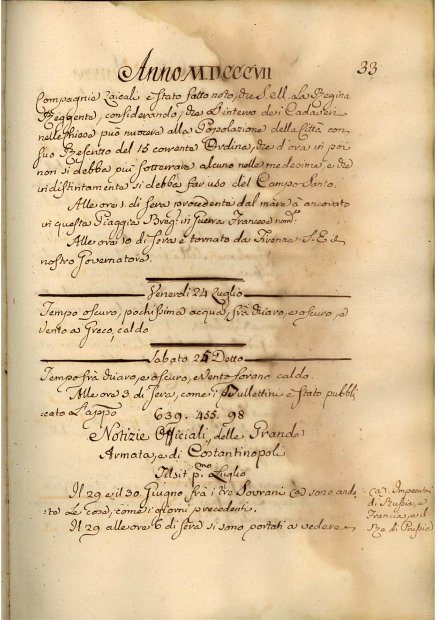 Anno MDCCCVII
33
Compagnie Laicali è stato fatto noto, che S. M. La Regina
Reggente, considerando, che L'interro dei Cadaveri
nelle Chiese può nuocere alla Popolazione della Città con
suo Rescritto del 15 corrente Ordina, che d'ora in poi
non si debba più sotterrare alcuno nelle medesime, e che
indistintamente si debba far uso del Campo Santo.
Alle ore 1 di sera procedente dal mare à ancorato
in questa Piaggia Brig: di Guerra Francese
Alle ore 10 di sera è tornato da Firenze S. E. il
nostro Governatore.
Venerdi 24 Luglio
Tempo oscuro, pochissima acqua, frà chiaro, e oscuro, e
vento a Greco, caldo
Sabato 25 Detto
Tempo frà chiaro, e oscuro, e Vento forano caldo.
Alle ore 3 di sera, come i Bullettini è stato pubbli
cato L'appo
639. 455. 98
Notizie Officiali, delle Grande
Armata, e di Costantinopoli
Tilsit p:mo Luglio
Il 29 e il 30 Giugno frà i tre Sovrani (a) sono anda
:te Le cose, come i giorni precedenti.
Il 29 alle ore 6 di sera si sono portati a vedere
(a). Imperatori
di Russia, e
Francia, e il
Rè di Prussia